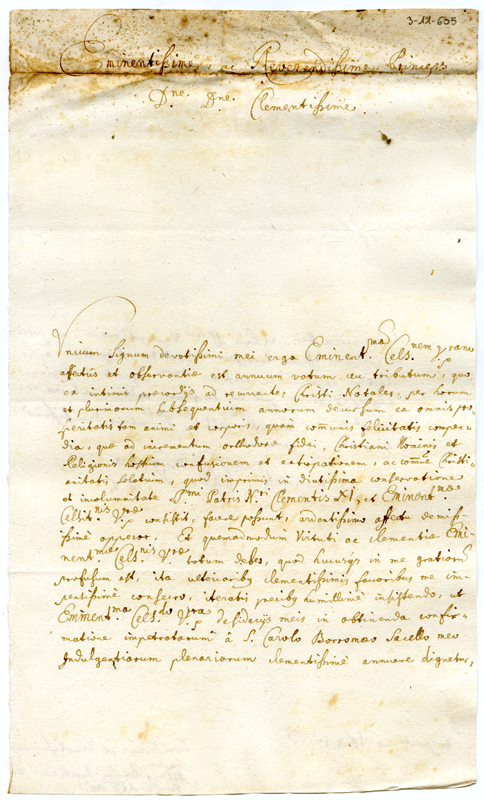 3-11-635
Eminentissime, ac Reverendissime Princeps
Dne. Dne. Clementissime.
Unicum Signum devotissimi mei erga Eminent.mam Cels.nem Vram
affectus et observantiæ est annuum votum ceu tributum, quo
ex intimis præcordijs ad recurrentes Christi Natales, per horum
et plurimorum subsequentium annorum decursum ea omnis pros
peritatis tam animi et corporis, quam com̃unis felicitatis compen
dia, quæ ad incrementum orthodoxæ fidei, Christiani Nominis et
Religionis hostium confusionem et extirpationem, ac com̃une Christi
anitatis solatium, quod imprimis in diutissima conservatione
et incolumitate Ssmi Patris Nri Clementis XI, et Eminent.mae
Celsit.nis Vræ consistit, facere possunt, ardentissimo affectu demis
sime apprecor. Et quemadmodum Virtuti ac clementiæ Emi
nent.mae Cels.nis Vræ totum debeo, quod hucusque in me gratiarum
profusum est, ita ulterioribus clementissimis favoribus me im
pensissime consecro, iteratis precibus humillime insistendo, ut
Eminent.ma Cels.do Vra desiderijs meis in obtinenda confir
matione impetratarum à S. Carolo Borromæo Sacello meo
Indulgentiarum plenariarum clementissime annuere dignetur,